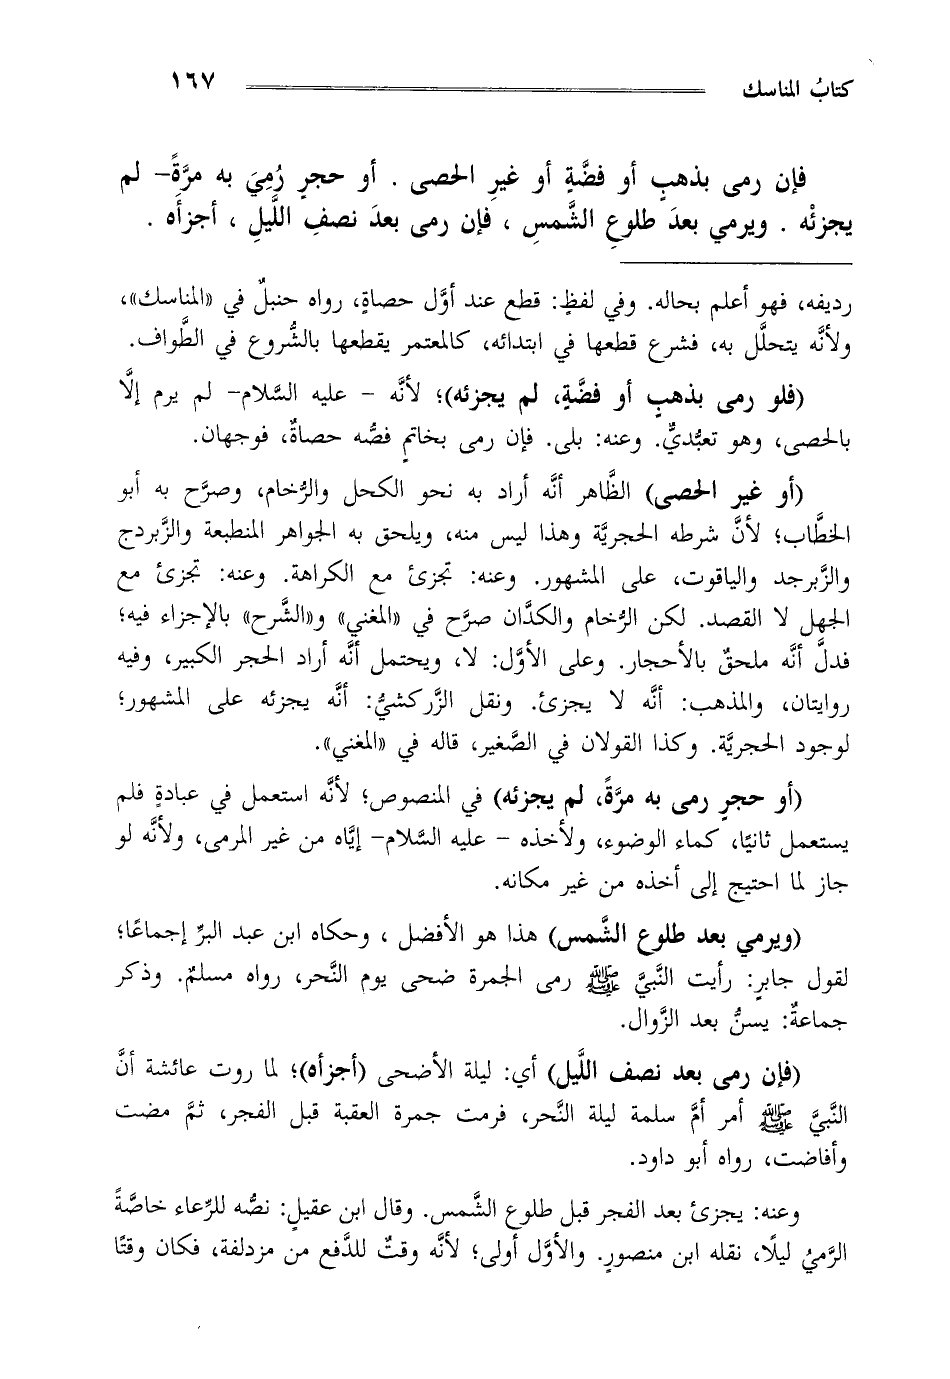 كتابُ المناسك ١٦٧
فإن رمى بذهبٍ أو فضَّةٍ أو غيرِ الحصى . أو حجرٍ رُمِيَ به مرَّةً– لم
يجزئْه . ويرمي بعدَ طلوعِ الشَّمسِ ، فإن رمى بعدَ نصفِ اللَّيلِ ، أجزأَه .
رديفه، فهو أعلم بحاله. وفي لفظٍ: قطع عند أوَّل حصاةٍ، رواه حنبلٌ في «المناسك»،
ولأنَّه يتحلَّل به، فشرع قطعها في ابتدائه، كالمعتمر يقطعها بالشُّروع في الطَّواف.
(فلو رمى بذهبٍ أو فضَّةٍ، لم يجزئه)؛ لأنَّه – عليه السَّلام– لم يرم إلَّا
بالحصى، وهو تعبُّديٌّ. وعنه: بلى. فإن رمى بخاتمٍ فصُّه حصاةٌ، فوجهان.
(أو غير الحصى) الظَّاهر أنَّه أراد به نحو الكحل والرُّخام، وصرَّح به أبو
الخطَّاب؛ لأنَّ شرطه الحجريَّة وهذا ليس منه، ويلحق به الجواهر المنطبعة والزَّبردج
والزَّبرجد والياقوت، على المشهور. وعنه: تجزئ مع الكراهة. وعنه: تجزئ مع
الجهل لا القصد. لكن الرُّخام والكدَّان صرَّح في «المغني» و«الشَّرح» بالإجزاء فيه؛
فدلَّ أنَّه ملحقٌ بالأحجار. وعلى الأوَّل: لا، ويحتمل أنَّه أراد الحجر الكبير، وفيه
روايتان، والمذهب: أنَّه لا يجزئ. ونقل الزَّركشيُّ: أنَّه يجزئه على المشهور؛
لوجود الحجريَّة. وكذا القولان في الصَّغير، قاله في «المغني».
(أو حجرٍ رمى به مرَّةً، لم يجزئه) في المنصوص؛ لأنَّه استعمل في عبادةٍ فلم
يستعمل ثانيًا، كماء الوضوء، ولأخذه – عليه السَّلام– إيَّاه من غير المرمى، ولأنَّه لو
جاز لما احتيج إلى أخذه من غير مكانه.
(ويرمي بعد طلوع الشَّمس) هذا هو الأفضل ، وحكاه ابن عبد البرِّ إجماعًا؛
لقول جابرٍ: رأيت النَّبيَّ ﷺ رمى الجمرة ضحى يوم النَّحر، رواه مسلمٌ. وذكر
جماعةٌ: يسنُّ بعد الزَّوال.
(فإن رمى بعد نصف اللَّيل) أي: ليلة الأضحى (أجزأه)؛ لما روت عائشة أنَّ
النَّبيَّ ﷺ أمر أمَّ سلمة ليلة النَّحر، فرمت جمرة العقبة قبل الفجر، ثمَّ مضت
وأفاضت، رواه أبو داود.
وعنه: يجزئ بعد الفجر قبل طلوع الشَّمس. وقال ابن عقيلٍ: نصُّه للرِّعاء خاصَّةً
الرَّميُ ليلًا، نقله ابن منصورٍ. والأوَّل أولى؛ لأنَّه وقتٌ للدَّفع من مزدلفة، فكان وقتًا